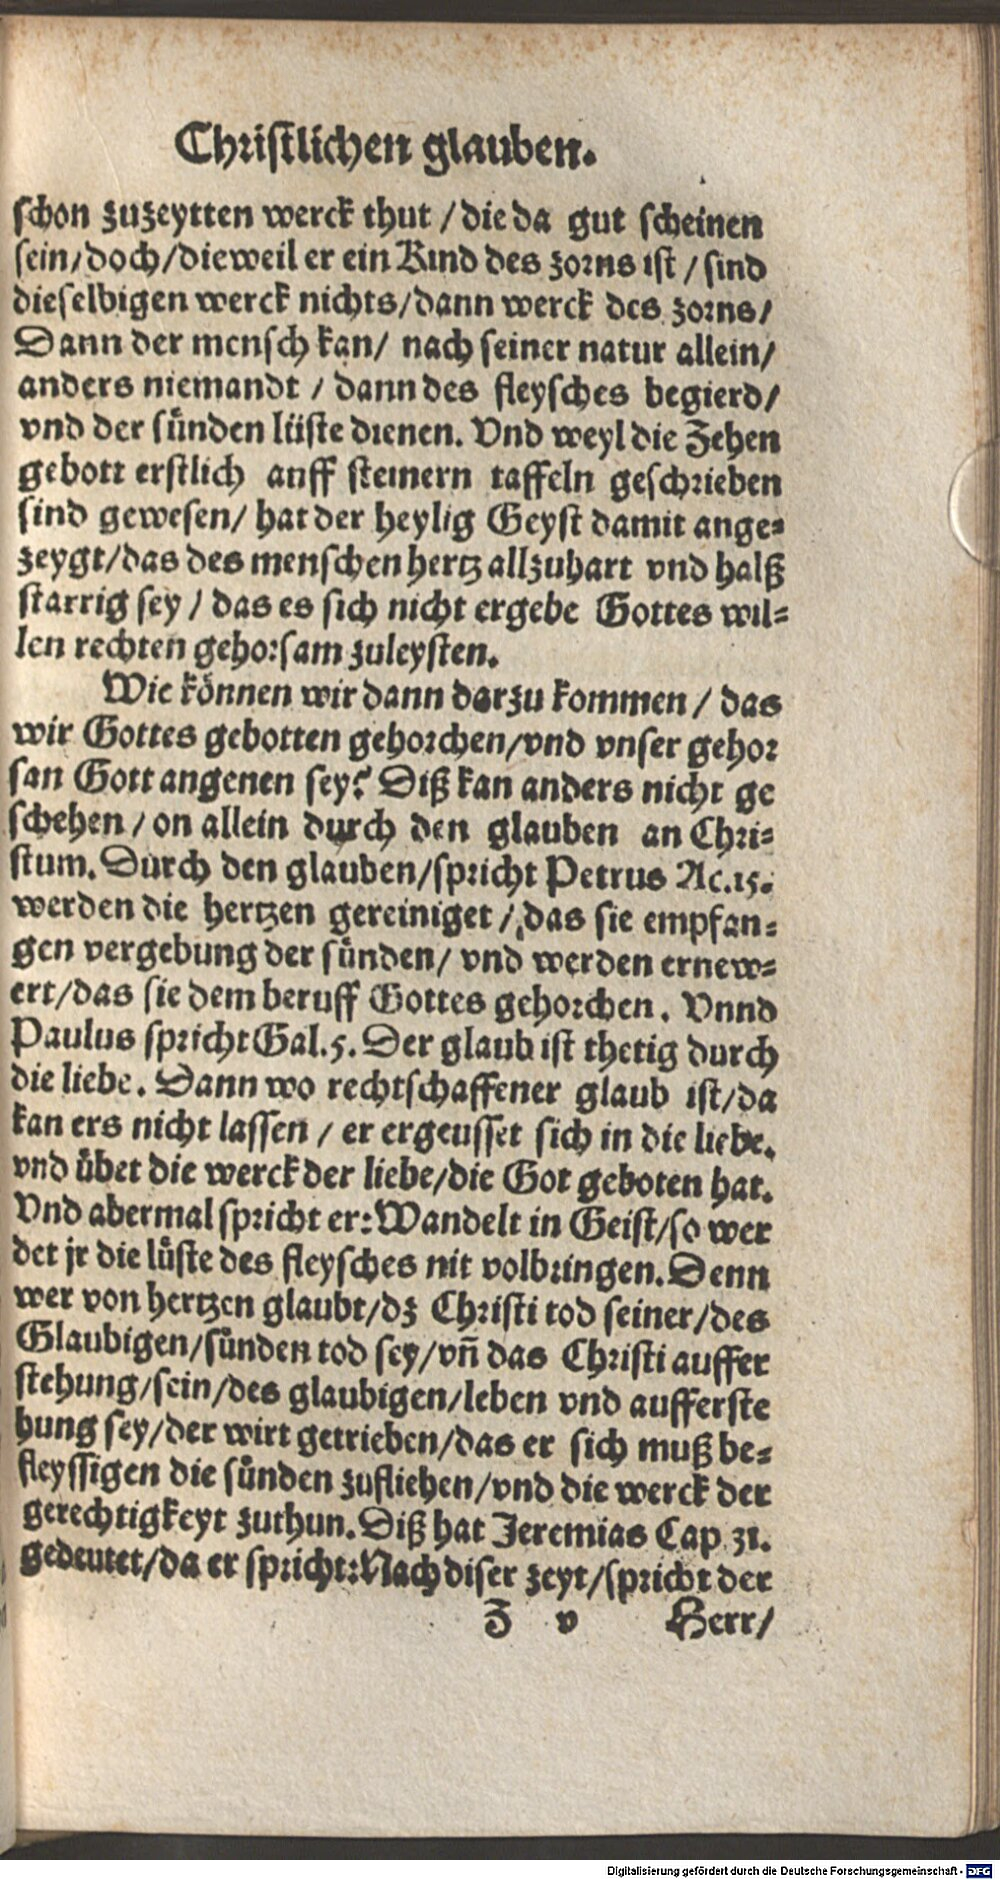 Christlichen glauben.
schon zuzeytten werck thut / die da gut scheinen
sein/doch/dieweil er ein Kind des zorns ist / sind
dieselbigen werck nichts/dann werck des zorns/
Dann der mensch kan/ nach seiner natur allein/
anders niemandt / dann des fleysches begierd/
vnd der suͤnden lüste dienen. Vnd weyl die Zehen
gebott erstlich auff steinern taffeln geschrieben
sind gewesen/ hat der heylig Geyst damit ange⸗
zeygt/das des menschen hertz allzuhart vnd halß
starrig sey / das es sich nicht ergebe Gottes wil⸗
len rechten gehorsam zuleysten.
Wie koͤnnen wir dann darzu kommen / das
wir Gottes gebotten gehorchen/vnd vnser gehor
san Gott angenen sey? Diß kan anders nicht ge
schehen / on allein durch den glauben an Chri⸗
stum. Durch den glauben/spricht Petrus Ac.15.
werden die hertzen gereiniget / das sie empfan⸗
gen vergebung der suͤnden/ vnd werden ernew⸗
ert/das sie dem beruff Gottes gehorchen. Vnnd
Paulus spricht Gal.5. Der glaub ist thetig durch
die liebe. Dann wo rechtschaffener glaub ist/da
kan ers nicht lassen / er ergeusset sich in die liebe.
vnd uͤbet die werck der liebe/die Got geboten hat.
Vnd abermal spricht er: Wandelt in Geist/so wer
det jr die luͤste des fleysches nit volbringen. Denn
wer von hertzen glaubt/dz Christi tod seiner/des
Glaubigen/suͤnden tod sey/vñ das Christi auffer
stehung/sein/des glaubigen/leben vnd aufferste
hung sey/der wirt getrieben/das er sich muß be⸗
fleyssigen die suͤnden zufliehen/vnd die werck der
gerechtigkeyt zuthun. Diß hat Jeremias Cap 31.
gedeutet/da er spricht: Nach diser zeyt/spricht der
Z v Herr/
Digitalisierung gefördert durch die Deutsche Forschungsgemeinschaft - DFG